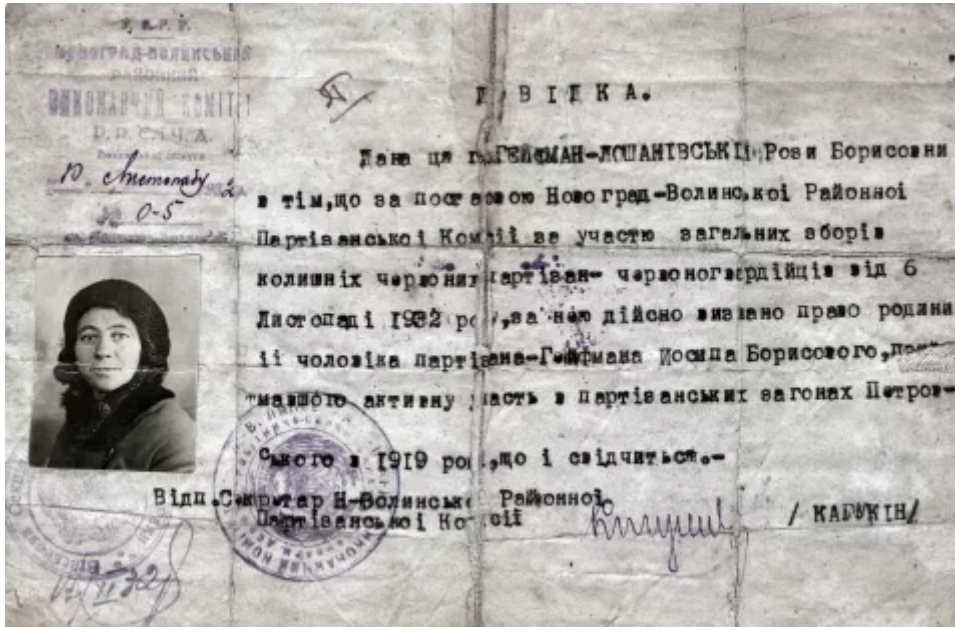 У.С.Р.Р.
НОВОГРАД-ВОЛИНСЬКИЙ
РАЙОННИЙ
ВИКОНАВЧИЙ КОМІТЕТ
Р.Р.С.Ч.Д.
10 Листопаду 1932
№ 0-5
ДОВІДКА.
Дана ця гр. ГЕЙФМАН-ЛОШАНІВСЬКІЙ Рози Борисовни
в тім,що за постановою Новоград-Волинської Районної
Партізанської Комісії за участю загальних зборів
колишніх червоних партізан- червоногвардійців від 6
Листопаді 1932 року,за нею дійсно визнано право родини
її чоловіка партізана-Гейфмана Йосипа Борисового,
тмавшого активну участь в партізанських загонах Петров-
ського в 1919 році,що і свідчиться.-
Відп.Секретар Н-Волинської Районної
Партізанської Комісії / КАРУКІН/